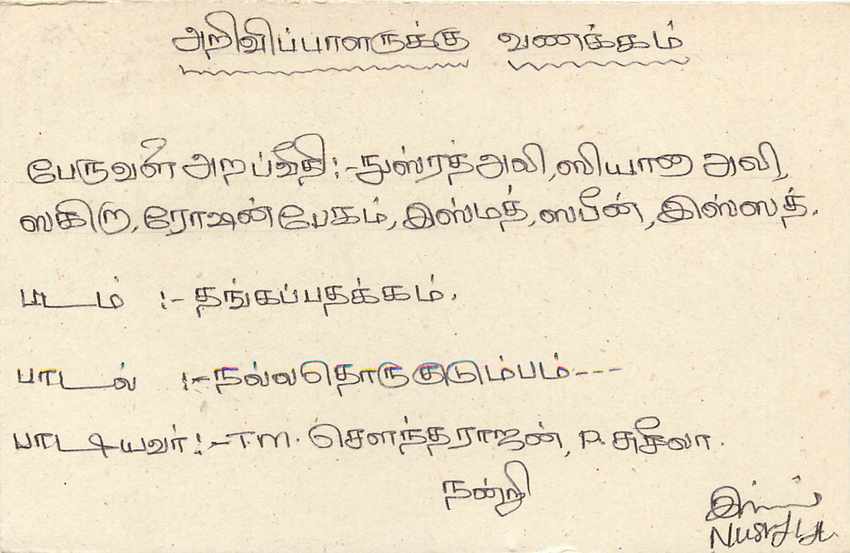 அறிவிப்பாளருக்கு வணக்கம்
பேருவள அறப்வீதி:- நுஸ்ரத் அலி, ஸியானா அலி,
ஸகிறா, ரோஷன் பேகம், இஸ்மத், ஸபீன், இஸ்ஸத்.
படம் :- தங்கப்பதக்கம்.
பாடல் :- நல்லதொரு குடும்பம் ---
பாடியவர் :- T.M. சௌந்தராஜன், P. சுசீலா.
நன்றி